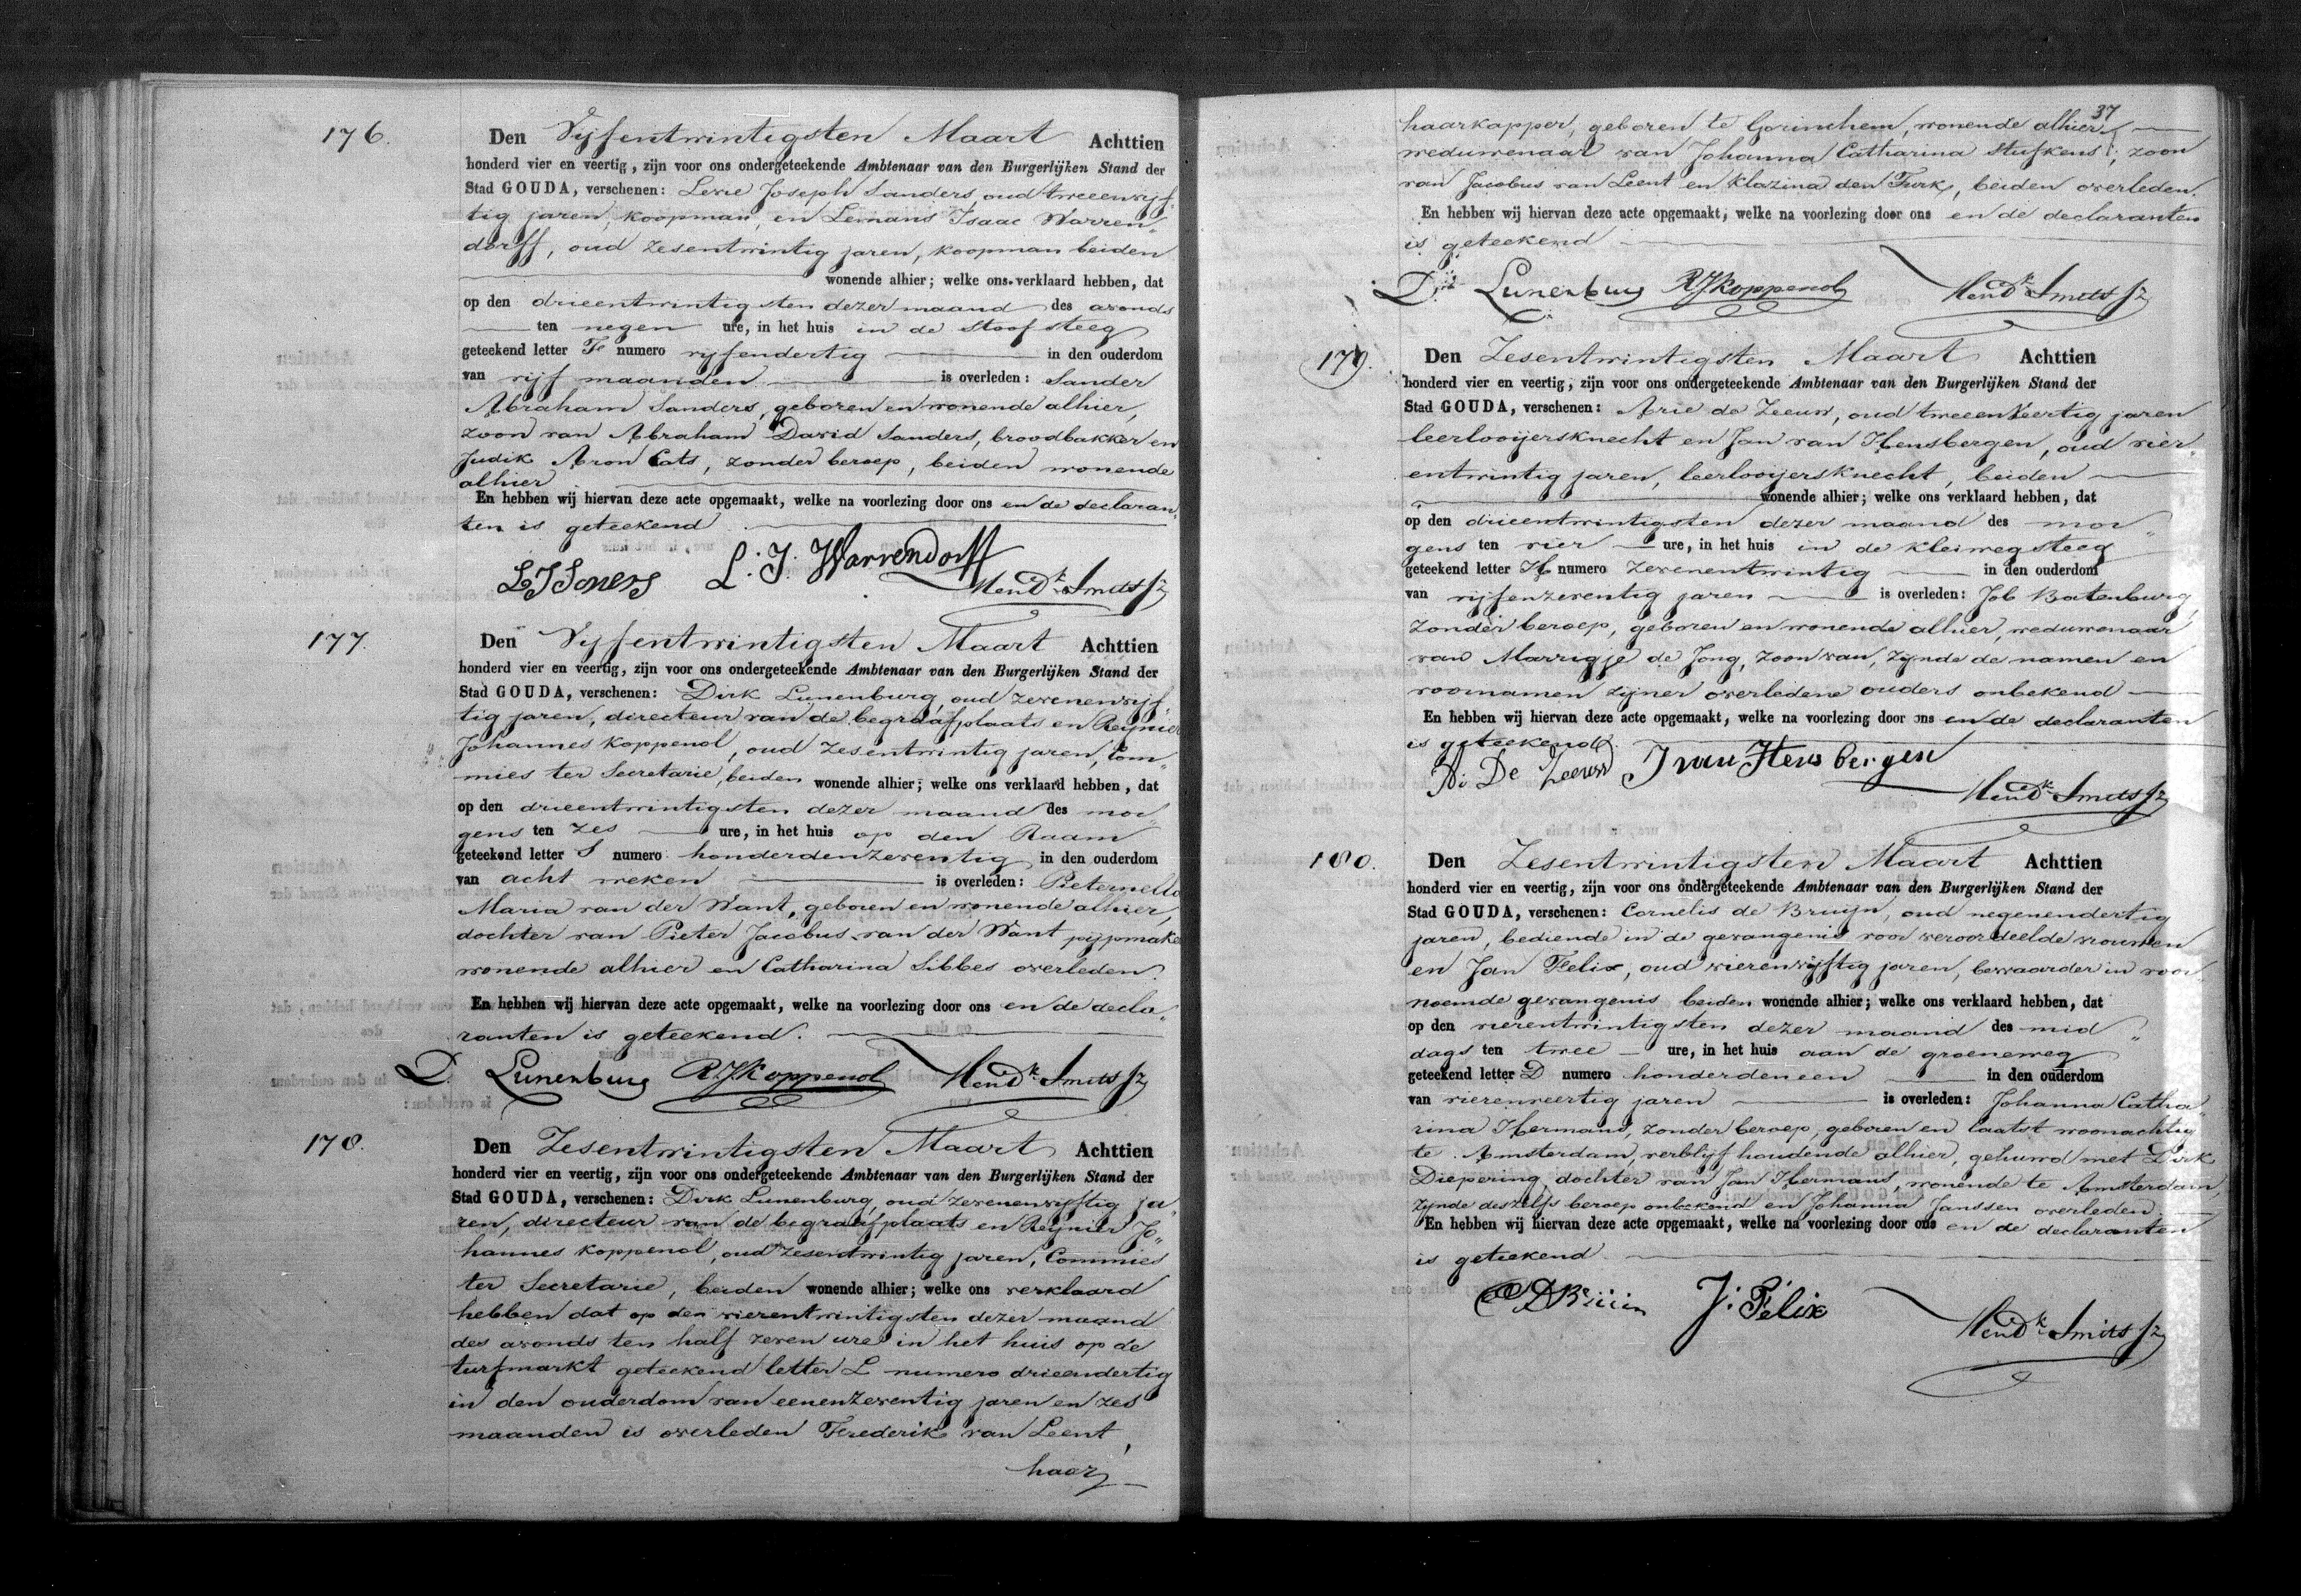 176.
Den Vijfentwintigsten Maart Achttien
honderd vier en veertig, zijn voor ons ondergeteekende Ambtenaar van den Burgerlijken Stand der
Stad GOUDA, verschenen: Levie Joseph Sanders, oud tweeenvijf-
tig jaren, koopman, en Lemans Isaac Warren"
dorff, oud zesentwintig jaren, koopman beiden
wonende alhier; welke ons verklaard hebben, dat
op den drieentwintigsten dezer maand des avonds
ten negen ure, in het huis in de Stoofsteeg
geteekend letter F numero vijfendertig in den ouderdom
van vijf maanden is overleden: Sander
Abraham Sanders, geboren en wonende alhier,
zoon van Abraham David Sanders, broodbakker en
Judik Aron Cats, zonder beroep, beiden wonende
alhier
En hebben wij hiervan deze acte opgemaakt, welke na voorlezing door ons en de declaran"
ten is geteekend.
L. I. Warrendorff Hend.k Smits Jz
177.
Den Vijfentwintigsten Maart Achttien
honderd vier en veertig, zijn voor ons ondergeteekende Ambtenaar van den Burgerlijken Stand der
Stad GOUDA, verschenen: Dirk Lunenburg, oud zevenenvijf"
tig jaren, directeur van de begraafplaats en Reijnier
Johannes Koppenol, oud zesentwintig jaren, Com"
mies ter Secretarie, beiden wonende alhier; welke ons verklaard hebben, dat
op den drieentwintigsten dezer maand des mor"
gens ten zes ure, in het huis op den Raam
geteekend letter S numero honderdenzeventig in den ouderdom
van acht weken is overleden: Pieternella
Maria van der Want, geboren en wonende alhier,
dochter van Pieter Jacobus van der Want pijpmaker
wonende alhier en Catharina Sibbes overleden.
En hebben wij hiervan deze acte opgemaakt, welke na voorlezing door ons en de decla"
ranten is geteekend.
D. Lunenburg RJKoppenol Hend.k Smits Jz
178.
Den Zesentwintigsten Maart Achttien
honderd vier en veertig, zijn voor ons ondergeteekende Ambtenaar van den Burgerlijken Stand der
Stad GOUDA, verschenen: Dirk Lunenburg, oud zevenenvijftig ja"
ren, directeur van de begraafplaats en Reijnier Jo"
hannes Koppenol, oud zesentwintig jaren, Commies
ter Secretarie, beiden wonende alhier; welke ons verklaard
hebben dat op den vierentwintigsten dezer maand
des avonds ten half zeven ure in het huis op de
turfmarkt geteekend letter L numero drieendertig
in den ouderdom van eenenzeventig jaren en zes
maanden is overleden Frederik van Leent,
haar
37
haarkapper, geboren te Gorinchem, wonende alhier,
weduwenaar van Johanna Catharina Stufkens, zoon
van Jacobus van Leent en Klazina den Turk, beiden overleden.
En hebben wij hiervan deze acte opgemaakt, welke na voorlezing door ons en de declaranten
is geteekend
D. Lunenburg RJKoppenol Hend.k Smits Jz
179.
Den Zesentwintigsten Maart Achttien
honderd vier en veertig, zijn voor ons ondergeteekende Ambtenaar van den Burgerlijken Stand der
Stad GOUDA, verschenen: Arie de Zeeuw, oud tweeenveertig jaren
leerlooijersknecht en Jan van Hensbergen, oud vier"
entwintig jaren, leerlooijersknecht, beiden
wonende alhier; welke ons verklaard hebben, dat
op den drieentwintigsten dezer maand des mor"
gens ten vier ure, in het huis in de kleiwegsteeg
geteekend letter H numero zevenentwintig in den ouderdom
van vijfenzeventig jaren is overleden: Job Batenburg,
zonder beroep, geboren en wonende alhier, weduwenaar
van Marrigje de Jong, zoon van, zijnde de namen en
voornamen zijner overledene ouders onbekend
En hebben wij hiervan deze acte opgemaakt, welke na voorlezing door ons en de declaranten
is geteekend.
A: De Zeeuw J van Hensbergen Hend.k Smits Jz
180.
Den Zesentwintigsten Maart Achttien
honderd vier en veertig, zijn voor ons ondergeteekende Ambtenaar van den Burgerlijken Stand der
Stad GOUDA, verschenen: Cornelis de Bruijn, oud negenendertig
jaren, bediende in de gevangenis voor veroordeelde vrouwen
en Jan Felix, oud vierenvijftig jaren, bewaarder in voor"
noemde gevangenis beiden wonende alhier; welke ons verklaard hebben, dat
op den vierentwintigsten dezer maand des mid"
dags ten twee ure, in het huis aan de groeneweg
geteekend letter D numero honderdeneen in den ouderdom
van vierenveertig jaren is overleden: Johanna Catha"
rina Hermans, zonder beroep, geboren en laatst woonachtig
te Amsterdam, verblijf houdende alhier, gehuwd met Dirk
Diepering, dochter van Jan Hermans, wonende te Amsterdam,
zijnde deszelfs beroep onbekend en Johanna Janssen overleden.
En hebben wij hiervan deze acte opgemaakt, welke na voorlezing door ons en de declaranten
is geteekend
J: Felix Hend.k Smits Jz